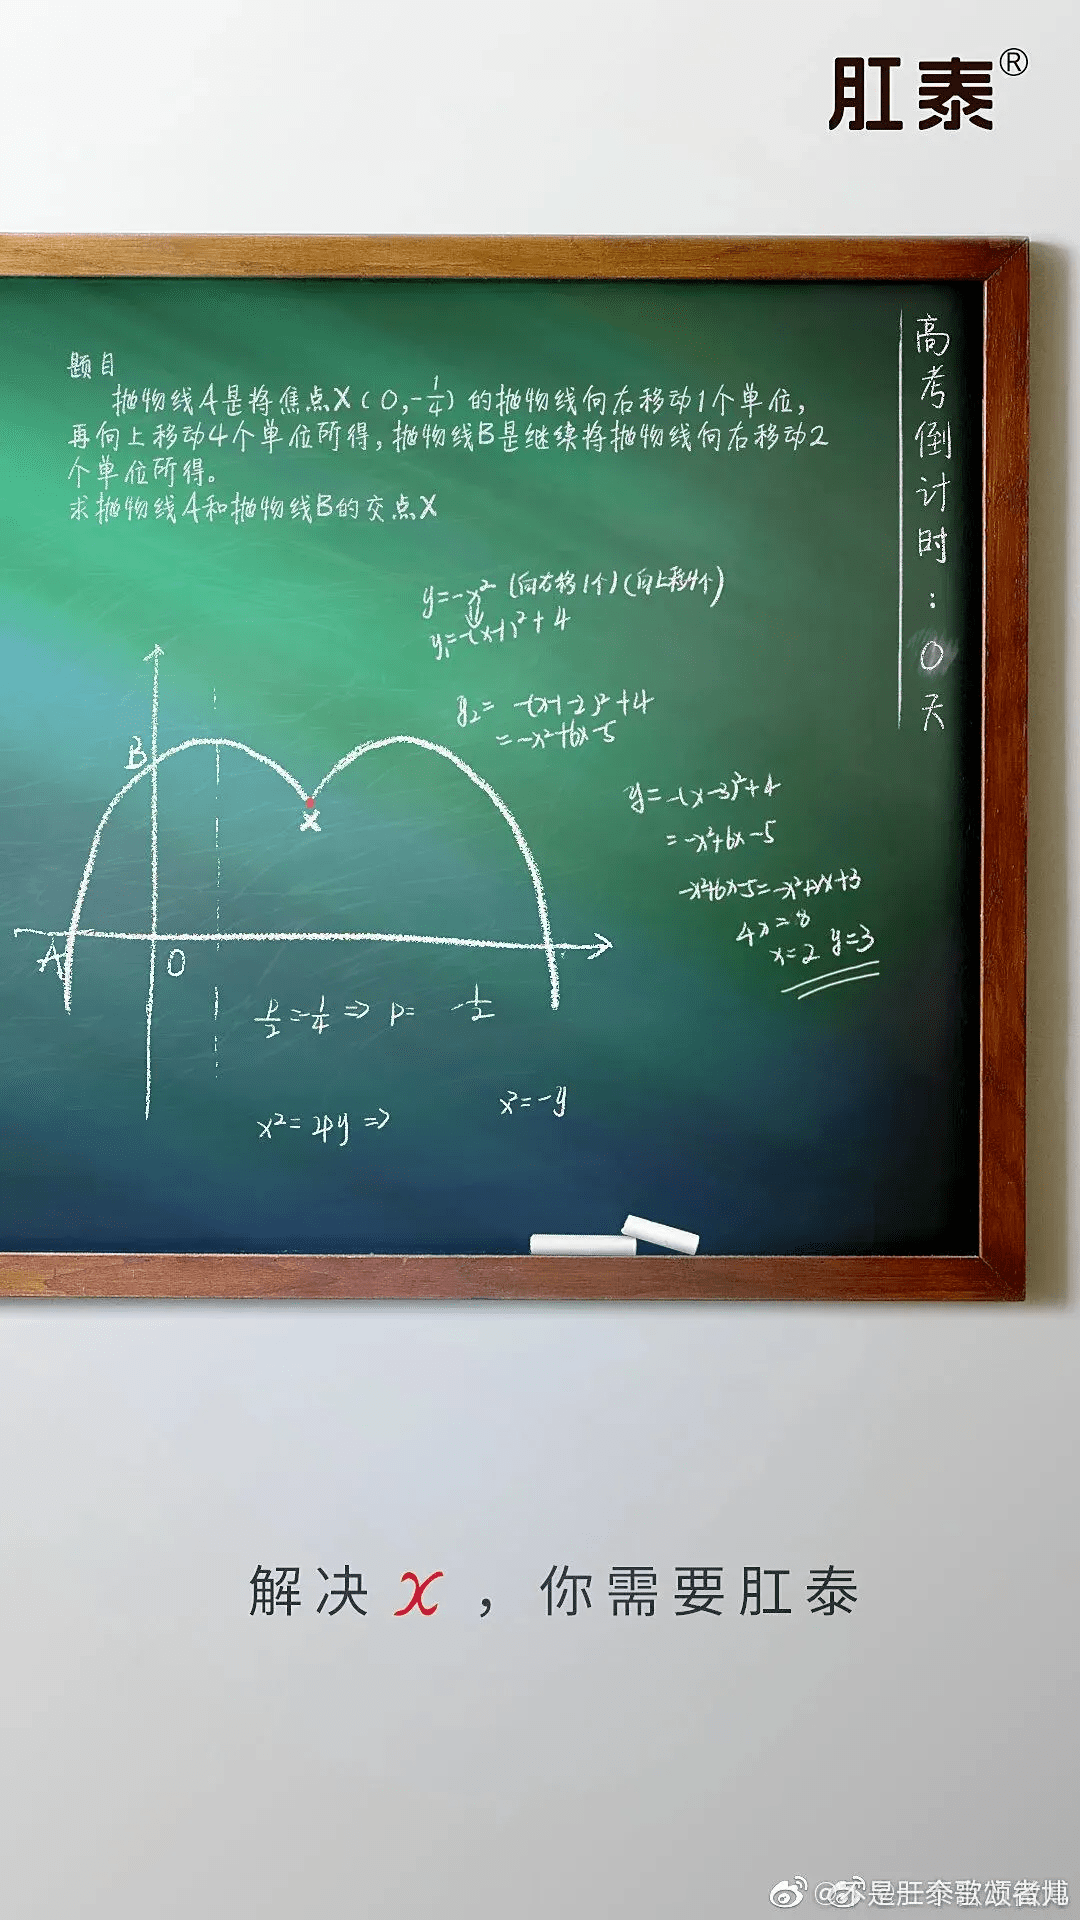 肛泰®
题目
抛物线A是将焦点X(0,-1/4)的抛物线向右移动1个单位,
再向上移动4个单位所得,抛物线B是继续将抛物线向右移动2
个单位所得。
求抛物线A和抛物线B的交点X
高考倒计时:0天
y=-x² (向右移1个)(向上移4个)
y₁=-(x-1)²+4
y₂= -(x-1-2)²+4
=-x²+6x-5
y=-(x-3)²+4
=-x²+6x-5
-x²+6x-5=-x²+2x+3
4x=8
x=2 y=3
B
X
A
O
p/2=-1/4 => p= -1/2
x²=2py => x²=-y
解决x,你需要肛泰